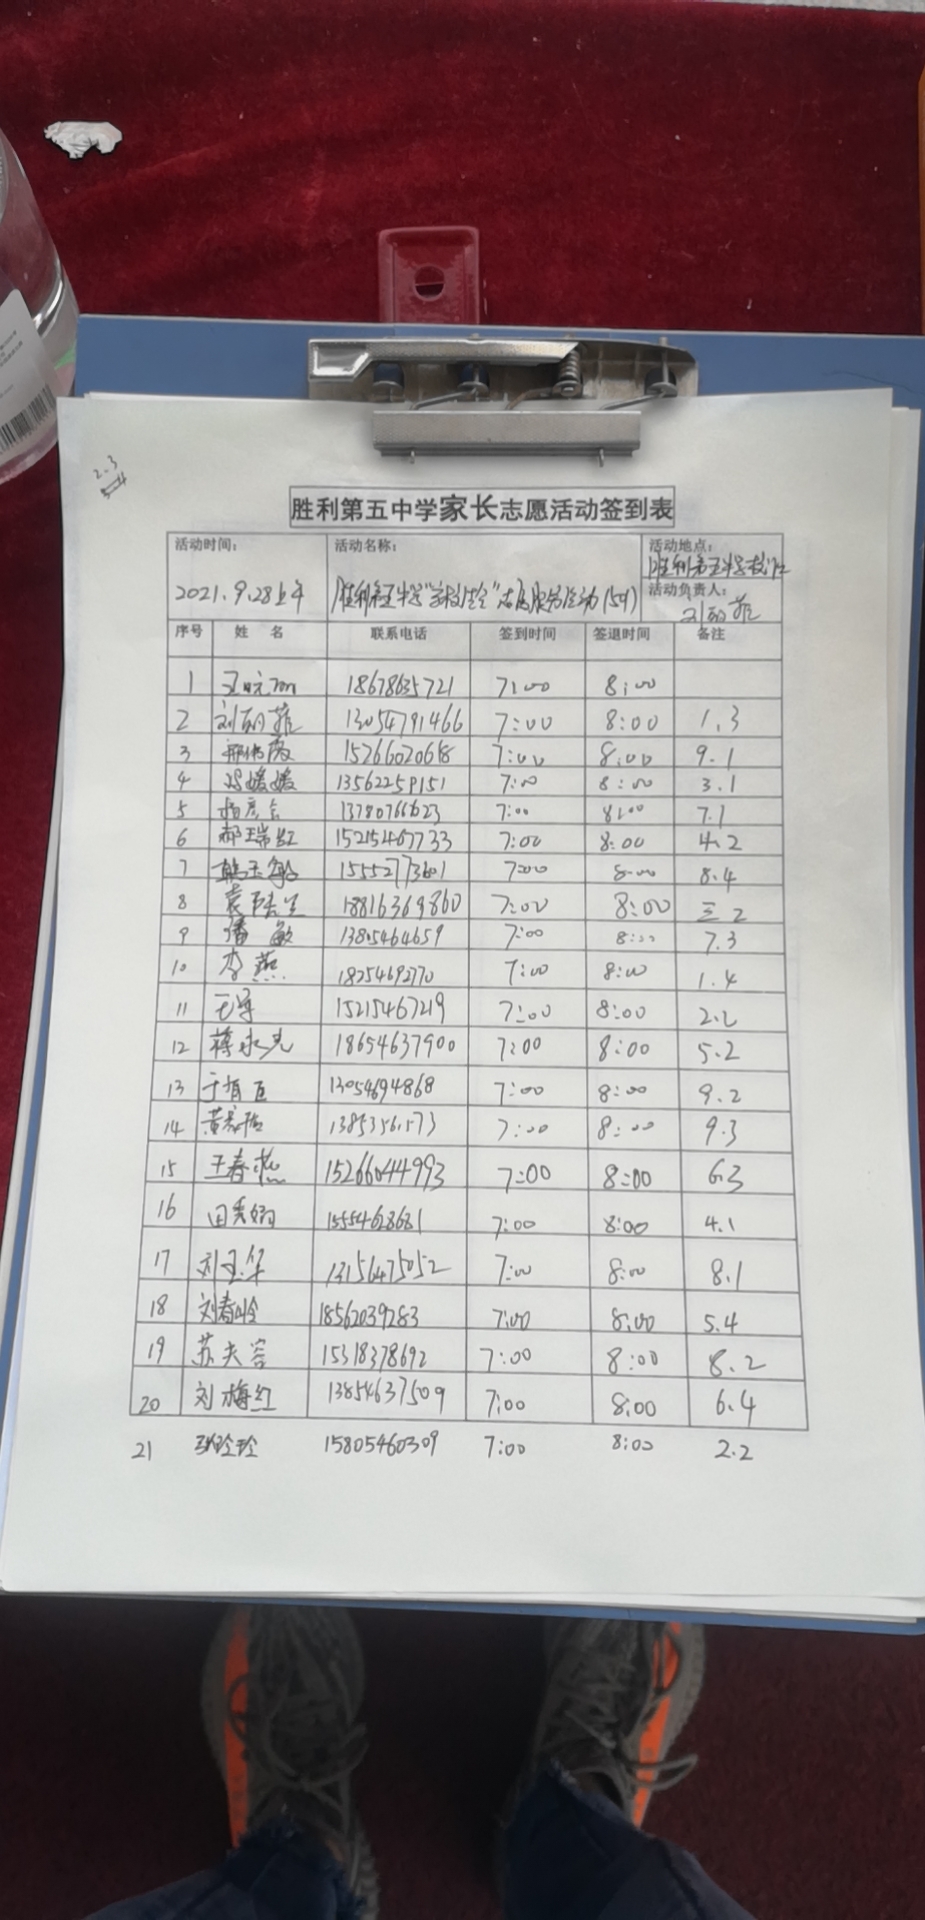 2.3
胜利第五中学家长志愿活动签到表
活动时间: 活动名称: 活动地点:
胜利第五中学校门口
2021.9.28上午 胜利第五中学"家校 "志愿服务活动 活动负责人:
刘 菲
序号 姓 名 联系电话 签到时间 签退时间 备注
1 18678635721 7:00 8:00
2 刘 菲 13054791466 7:00 8:00 1.3
3 15266020618 7:00 8:00 9.1
4 冯媛媛 13562259151 7:00 8:00 3.1
5 13780766623 7:00 8:00 7.1
6 郝瑞红 15215467733 7:00 8:00 4.2
7 韩玉敏 15552773601 7:00 8:00 8.4
8 18816369860 7:00 8:00 三2
9 潘敏 13805464659 7:00 8:00 7.3
10 李燕 18254692770 7:00 8:00 1.4
11 15215467219 7:00 8:00 2.2
12 蒋永光 18654637900 7:00 8:00 5.2
13 13054694868 7:00 8:00 9.2
14 7:00 8:00 9.3
15 王春燕 15266044993 7:00 8:00 6.3
16 田秀娟 15554628681 7:00 8:00 4.1
17 刘玉华 13156475052 7:00 8:00 8.1
18 刘春玲 18562039283 7:00 8:00 5.4
19 苏夫容 15318378692 7:00 8:00 8.2
20 刘梅红 13854637509 7:00 8:00 6.4
21 张玲玲 15805460309 7:00 8:00 2.2